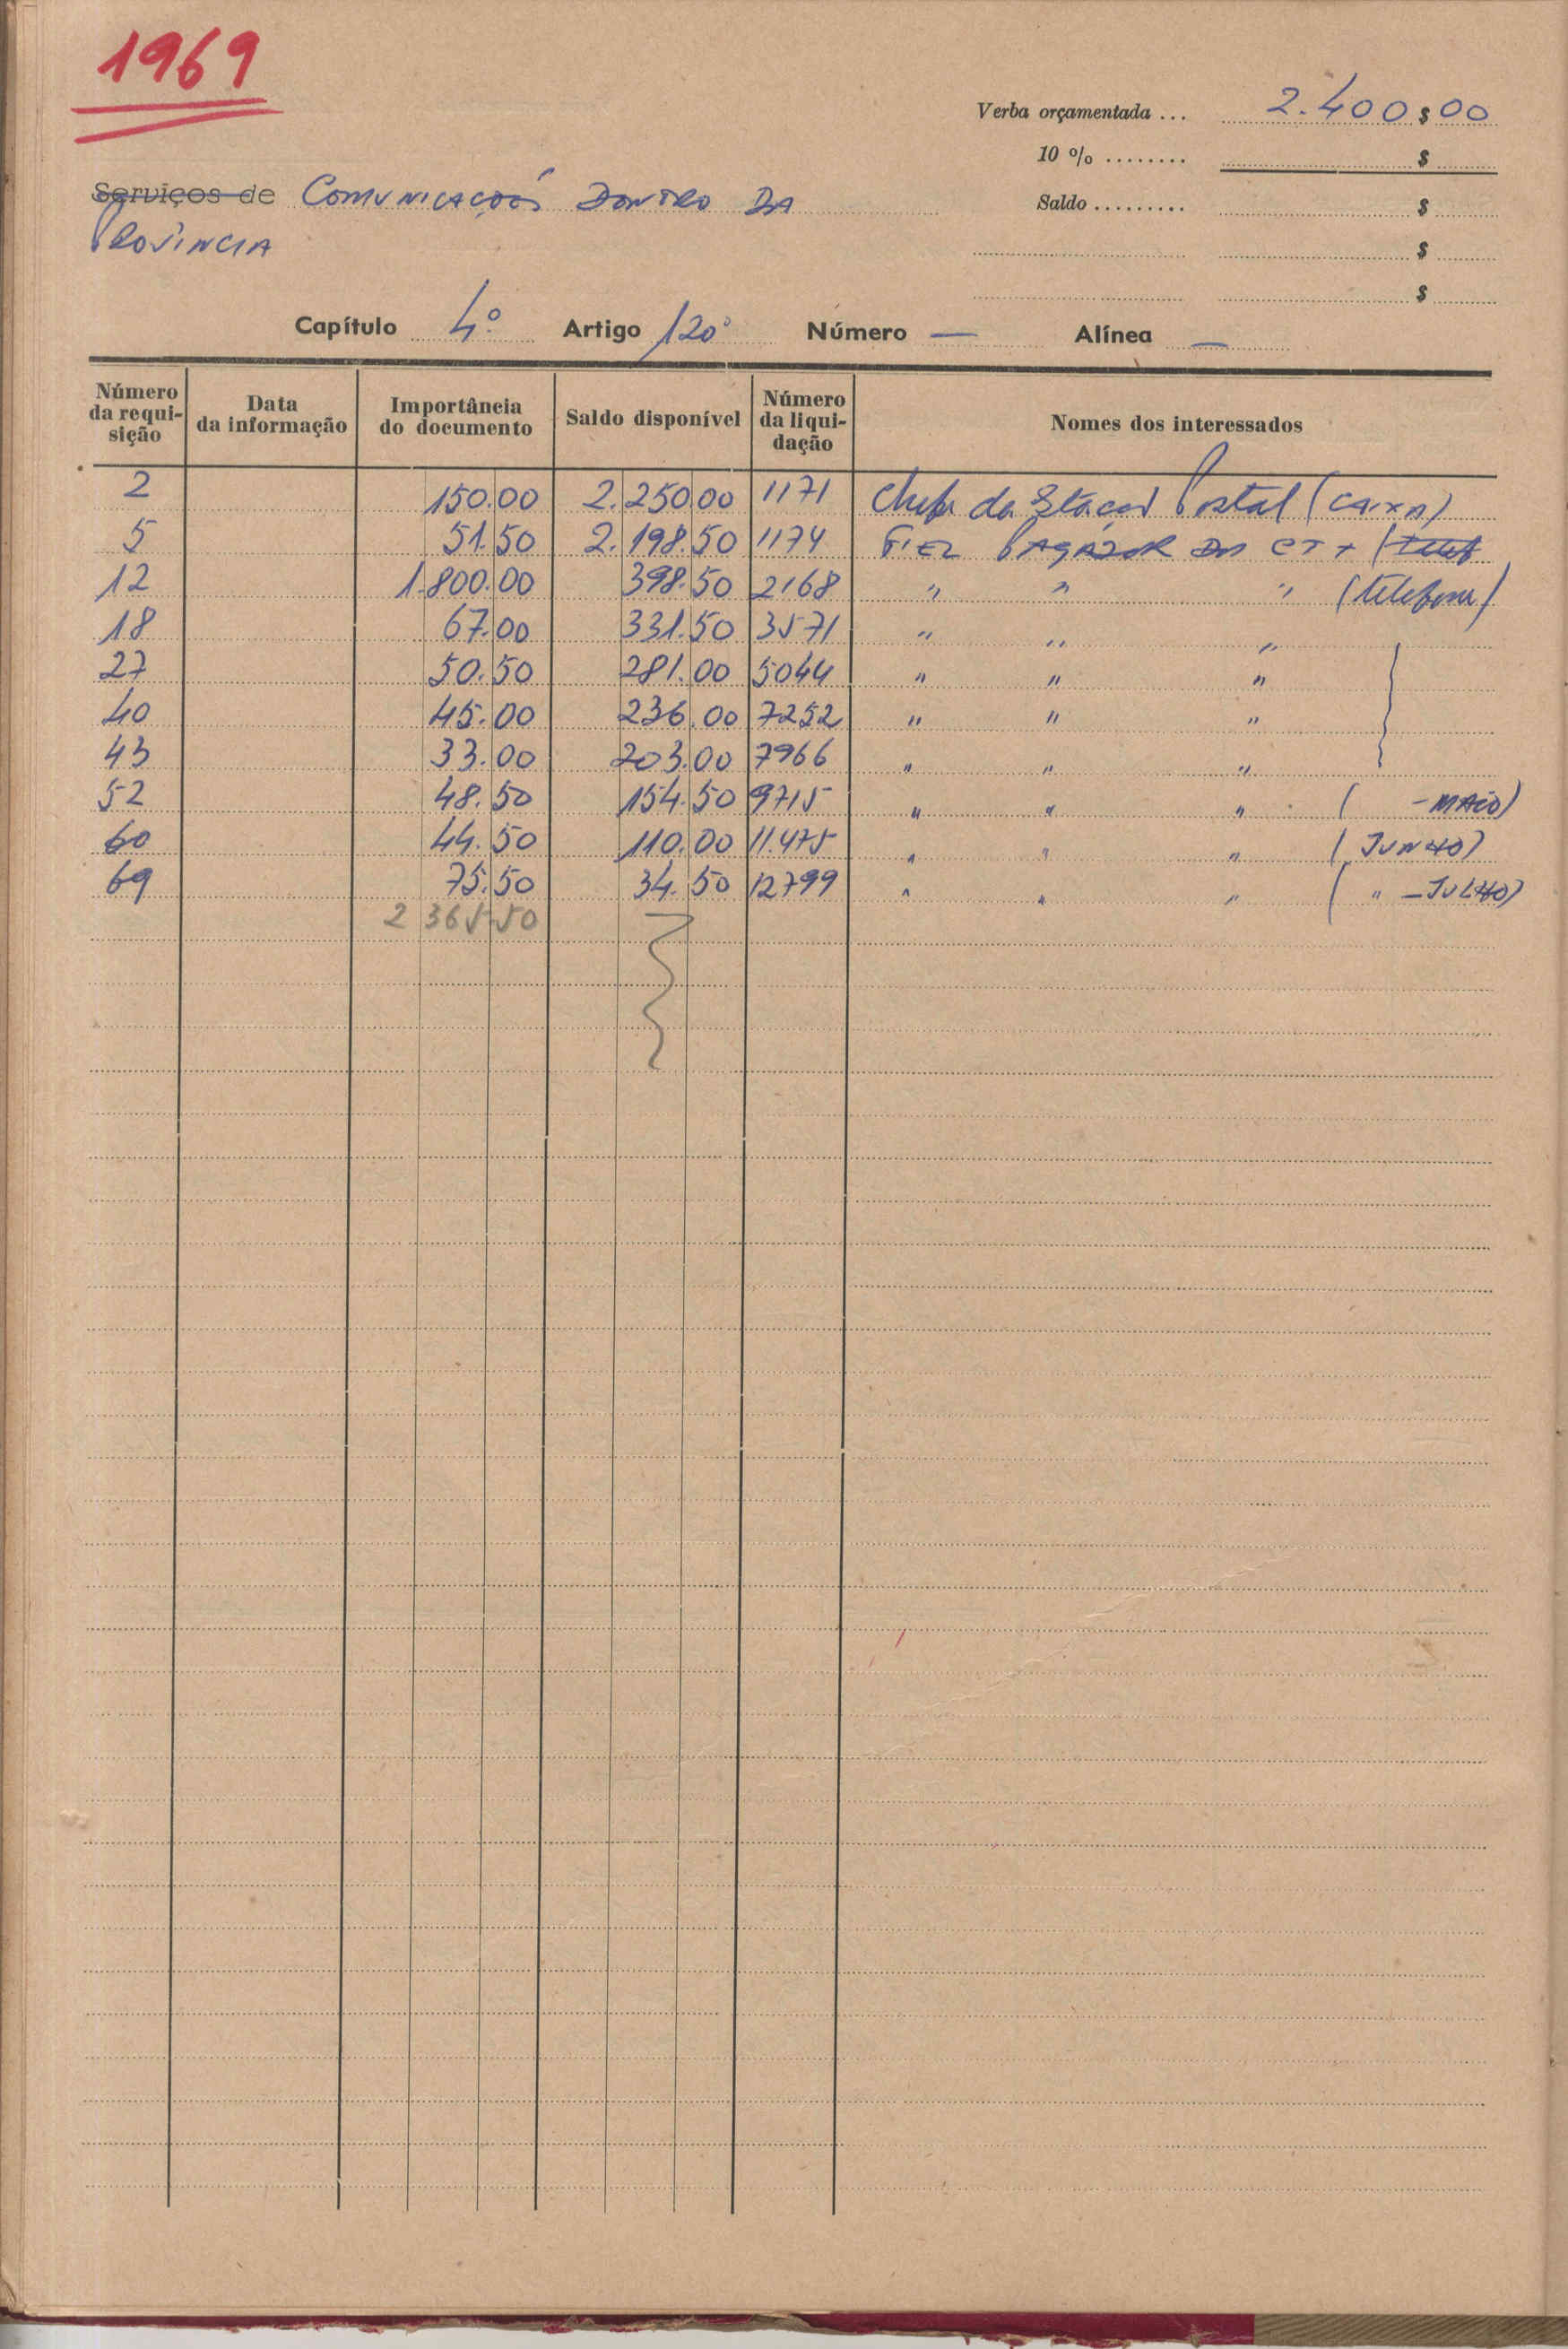 1969
Verba orçamentada ... 2.400$00
10 % ........ $
Serviços de COMUNICAÇÕES DENTRO DA
Saldo ......... $
PROVINCIA
$
$
Capítulo 4º Artigo 120º Número — Alínea —
Número da requi-sição Data da informação Importância do documento Saldo disponível Número da liqui-dação Nomes dos interessados
2 150.00 2.250.00 1171 Chefe da Estação Postal (CAIXA)
5 51.50 2.198.50 1174 FIEL PAGADOR DOS CTT (telef
12 1.800.00 398.50 2168 " " " (telefone)
18 67.00 331.50 3571 " " "
27 50.50 281.00 5044 " " "
40 45.00 236.00 7252 " " "
43 33.00 203.00 7966 " " "
52 48.50 154.50 9715 " " " ( - MAIO)
60 44.50 110.00 11.475 " " " (JUNHO)
69 75.50 34.50 12799 " " " ( " - JULHO)
2 365.50